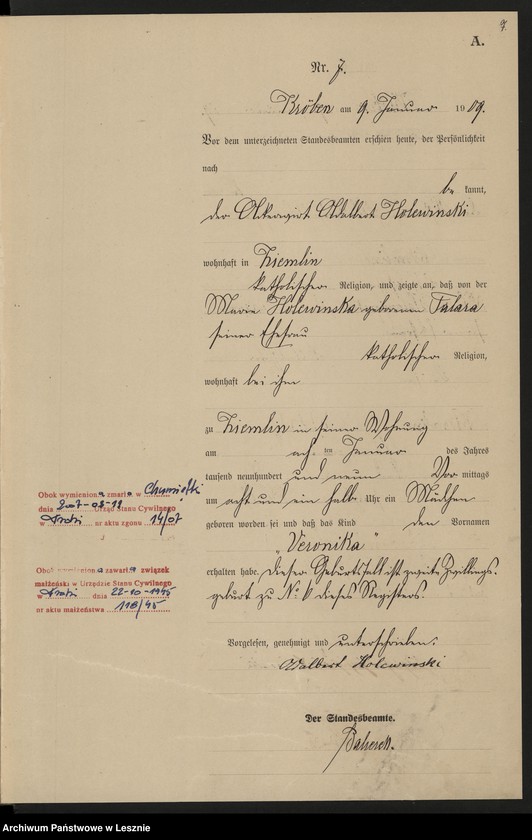 9.
A.
Nr. 7.
Kröben am 9. Januar 1909.
Vor dem unterzeichneten Standesbeamten erschien heute, der Persönlichkeit
nach
be kannt,
der Ackerwirt Adalbert Holewinski
wohnhaft in Ziemlin
katholischer Religion, und zeigte an, daß von der
Marie Holewinska geborenen Talara
seiner Ehefrau
katholischer Religion,
wohnhaft bei ihm
zu Ziemlin in seiner Wohnung
am ten Januar des Jahres
tausend neunhundert und neun Vor mittags
um acht und ein halb Uhr ein Mädchen
geboren worden sei und daß das Kind den Vornamen
„Veronika"
erhalten habe. Dieser Geburtsfall ist zweite Zwillings-
geburt zu No 6 dieses Registers.
Vorgelesen, genehmigt und unterschrieben:
Adalbert Holewinski
Der Standesbeamte.
Obok wymieniona zmarła w
dnia Urząd Stanu Cywilnego
w nr aktu zgonu
Obok wymieniona zawarła związek
małżeński w Urzędzie Stanu Cywilnego
w dnia 22-10-1945
nr aktu małżeństwa 118/45
Archiwum Państwowe w Lesznie